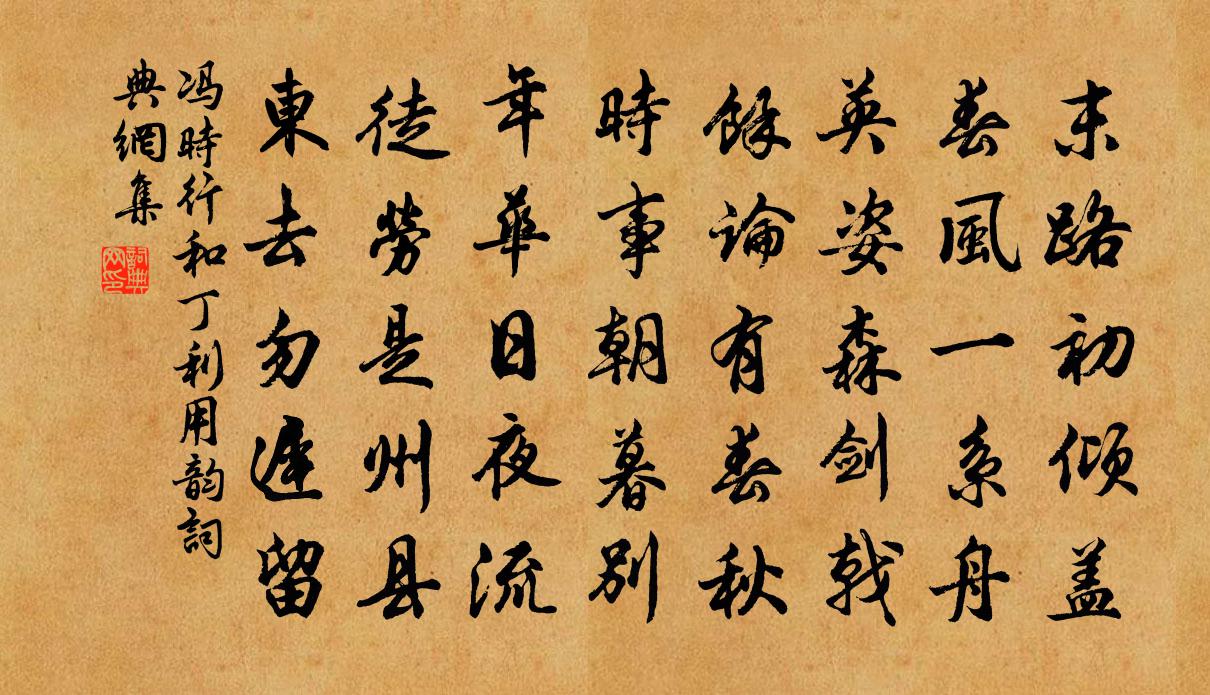 末路初倾盖
春風一系舟
英姿森剑戟
餘論有春秋
時事朝暮别
年華日夜流
徒勞是州县
東去勿遅留
冯時行和丁利用韵詞
典網集
詞典
网印